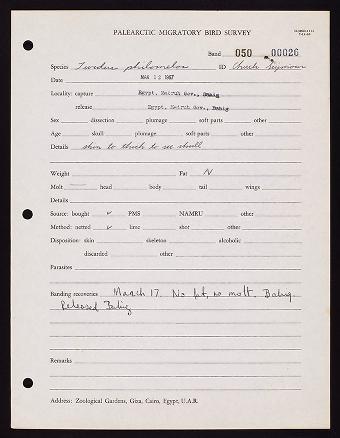 PALEARCTIC MIGRATORY BIRD SURVEY
Band 050 -00026
Species Turdus philomelos ID Chuck Seymour
Date MAR 12 1967
Locality: capture Egypt, Matruh Gov., Bahig
release Egypt, Matruh Gov., Bahig
Sex dissection plumage soft parts other
Age skull plumage soft parts other
Details skin to thick to see skull
Weight Fat N
Molt — head body tail wings
Details
Source: bought ✓ PMS NAMRU other
Method: netted ✓ lime shot other
Disposition: skin skeleton alcoholic
discarded other
Parasites
Banding recoveries March 17. No fat, no molt. Bahig.
Released Bahig
Remarks
Address: Zoological Gardens, Giza, Cairo, Egypt, U.A.R.